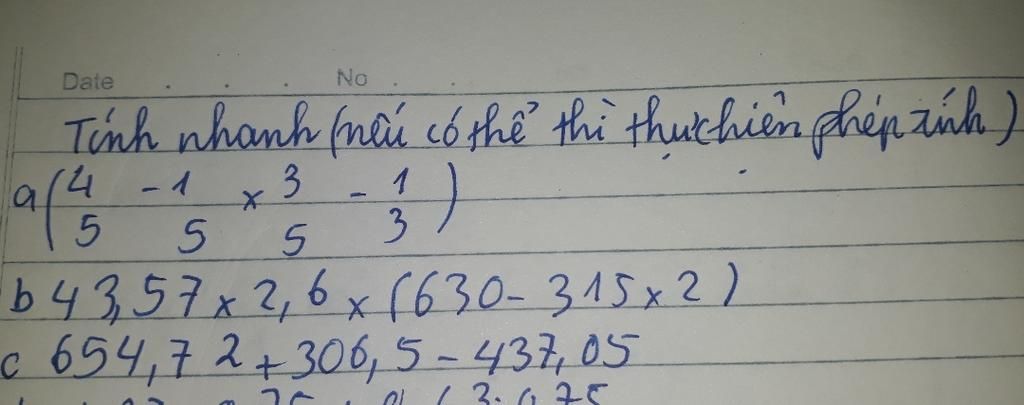 Date . . . No . .
Tính nhanh (nếu có thể thì thực hiện phép tính)
a (4/5 - 1/5 × 3/5 - 1/3)
b 43,57 × 2,6 × (630 - 315 × 2)
c 654,72 + 306,5 - 437,05